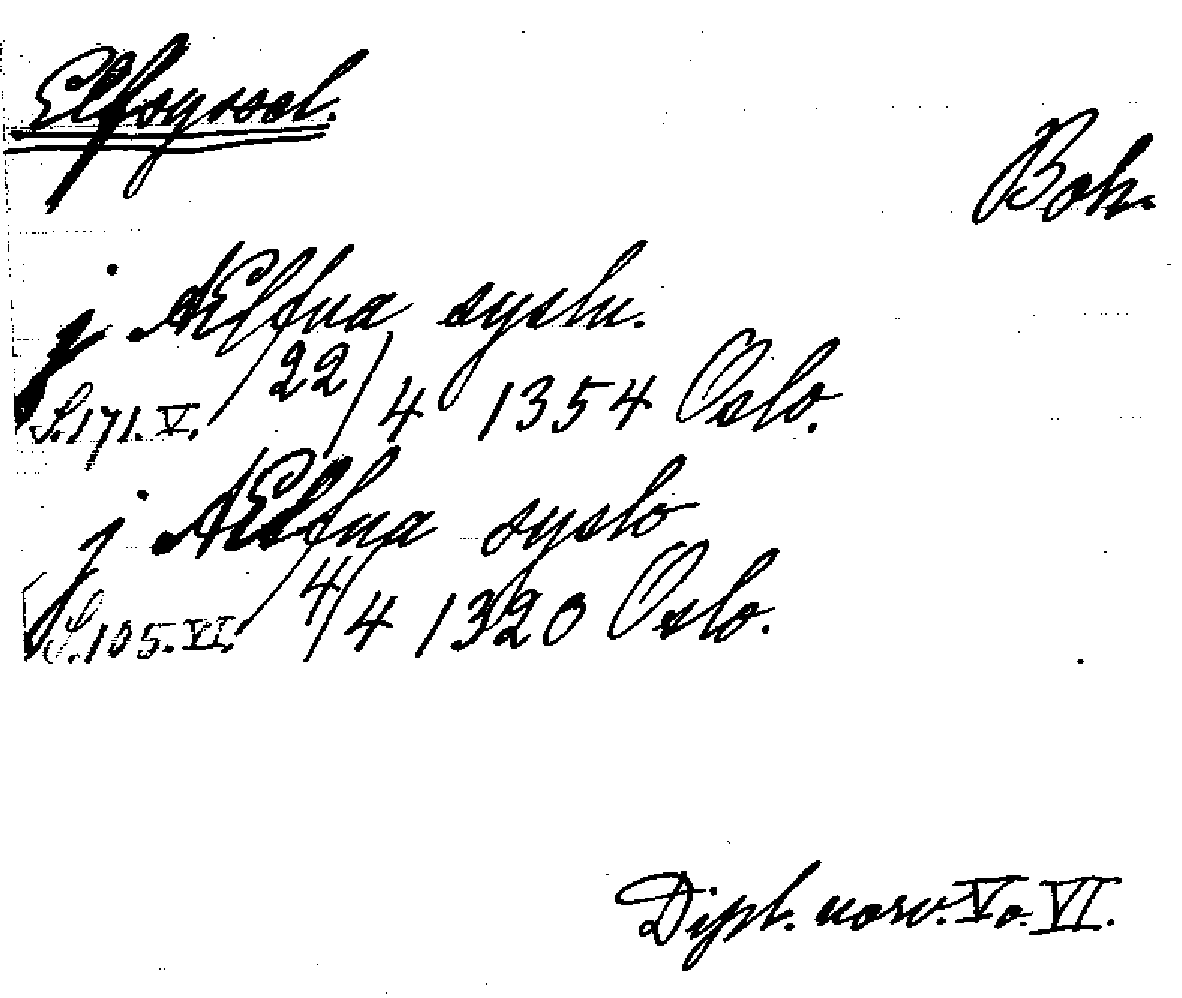 Elfsyssel.
Boh.
j AElfua syslu.
S. 171. V. 22/4 1354 Oslo.
j AElfua syslo
S. 105. VI. 4/4 1320 Oslo.
Dipl. norv. V o. VI.